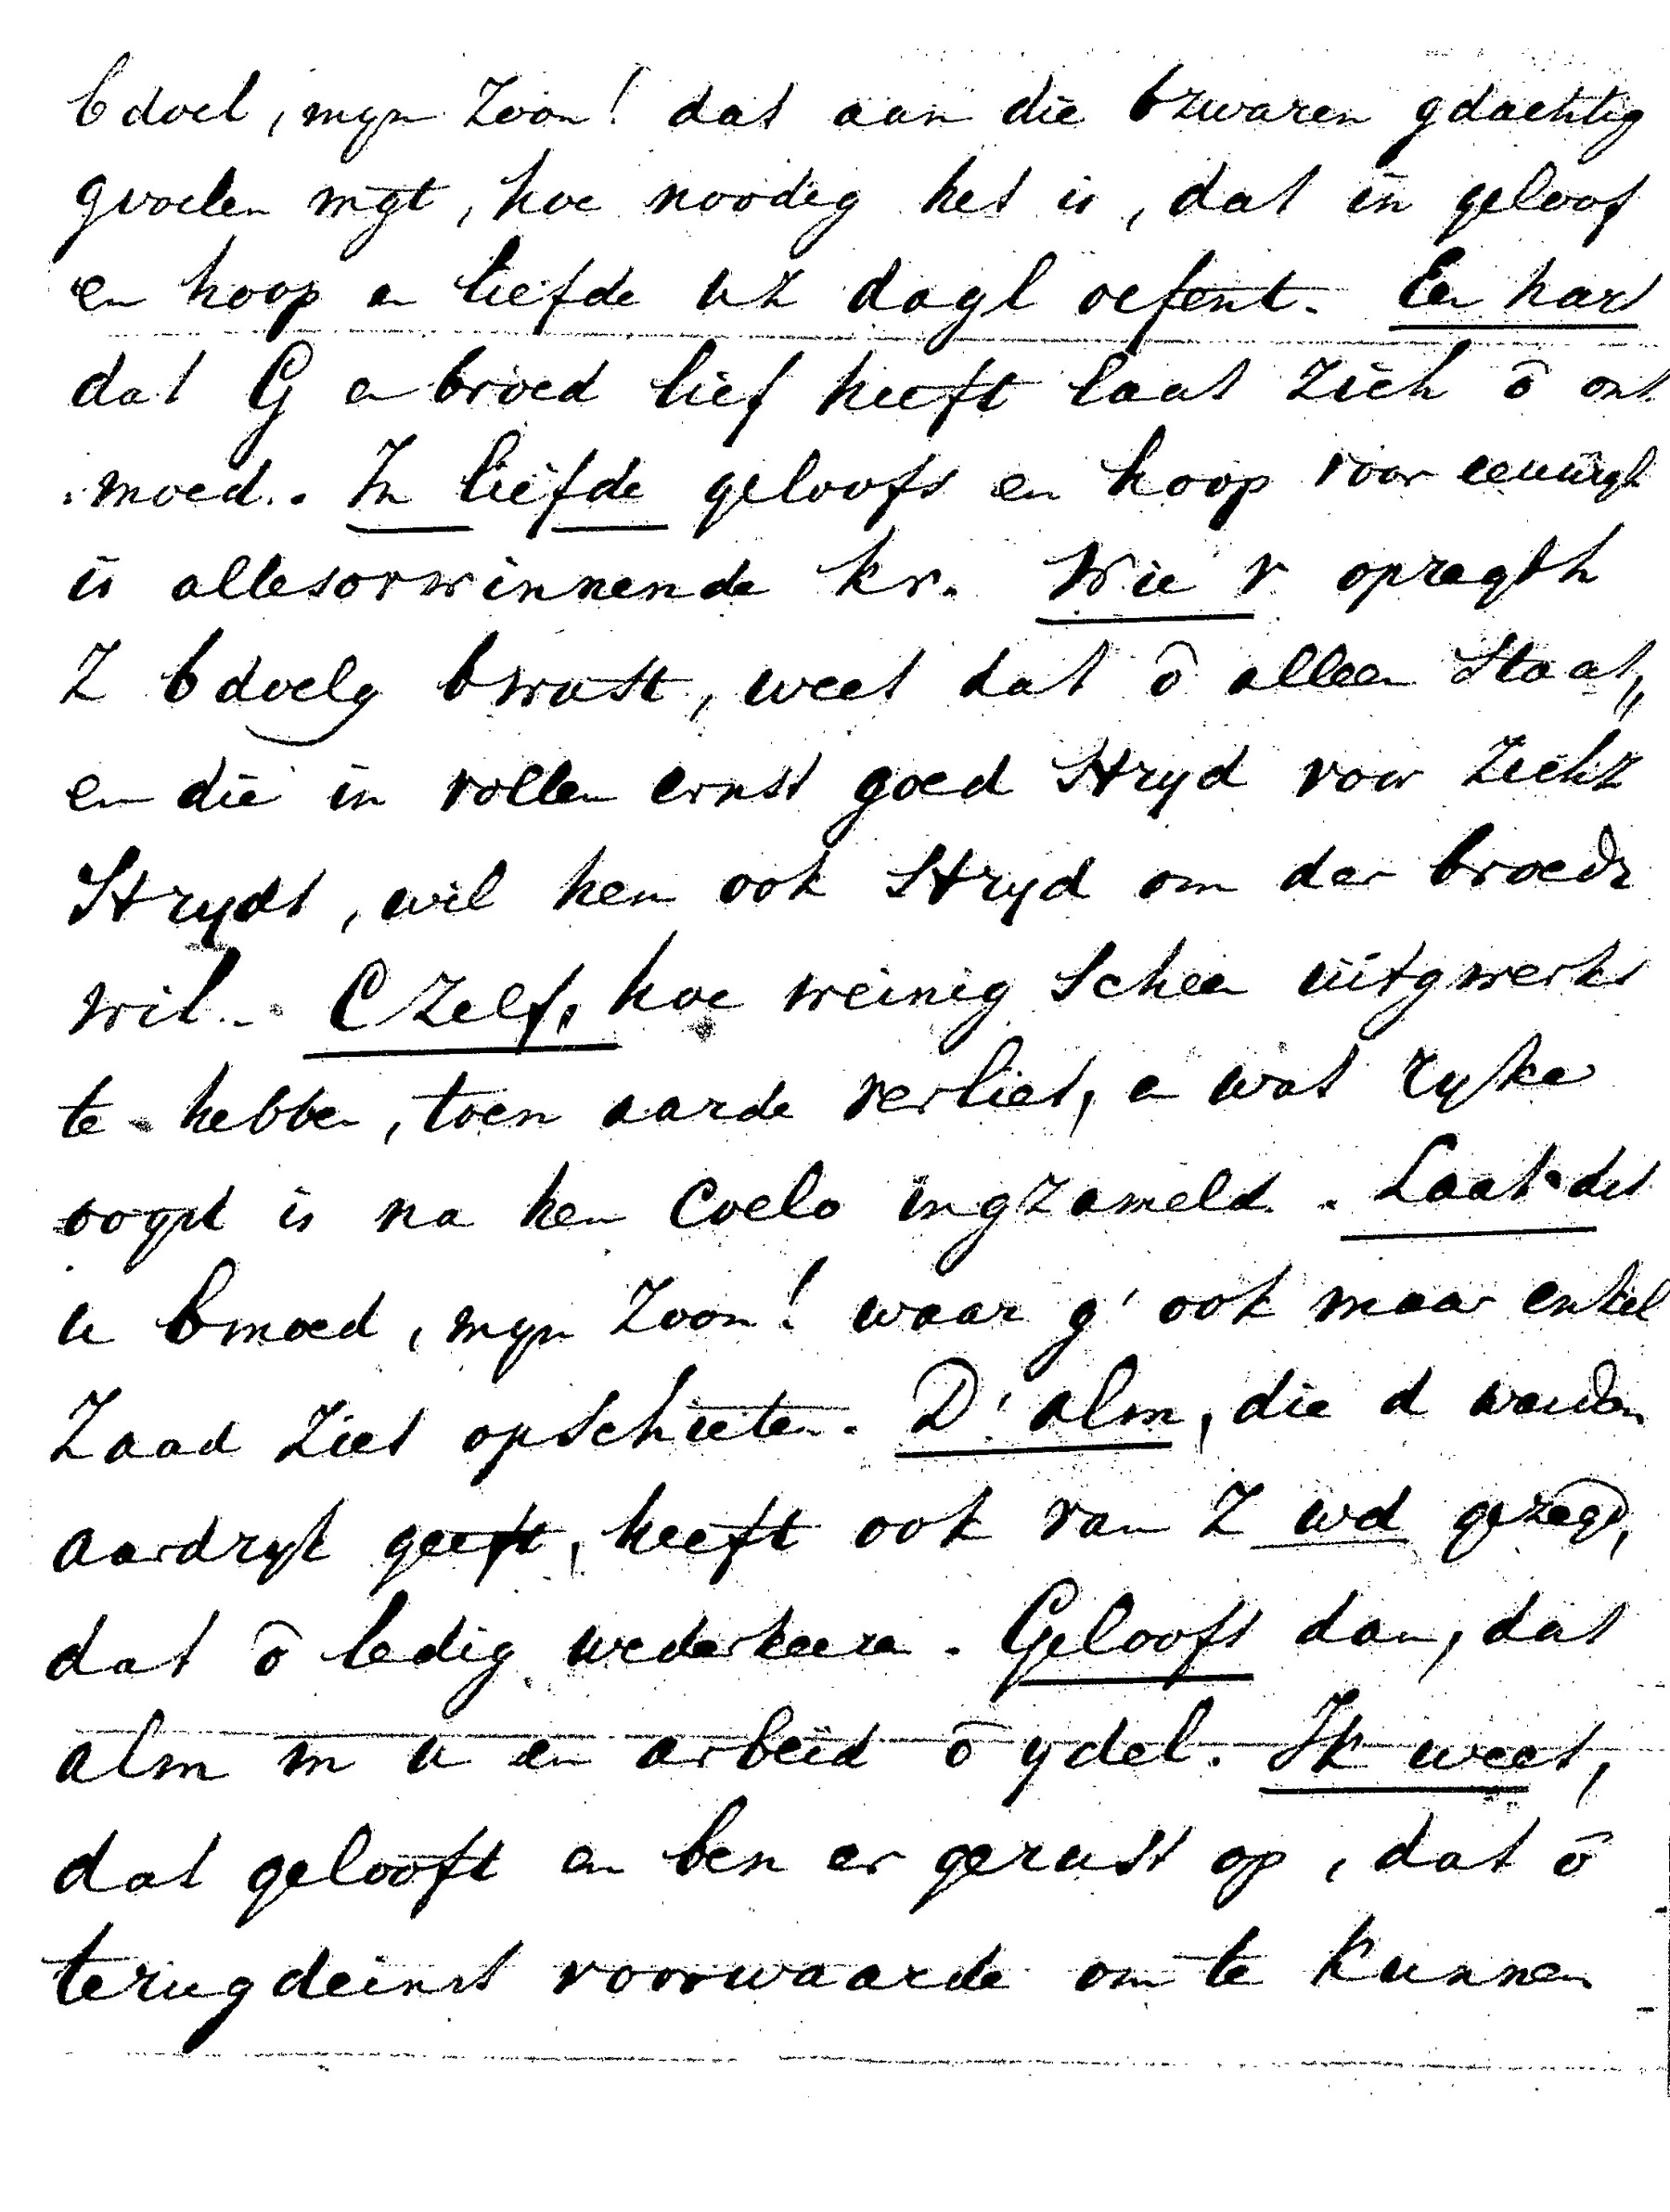 bdoel, myn Zoon! dat aan die bzwaren gdachtig
gvoelen mgt, hoe noodig het is, dat in geloof
en hoop en liefde uz dagl oefent. Een hart
dat G en broed lief heeft laat zich ō ont
moed.. In liefde geloofs en hoop voor eeuwigh
is allesovrwinnende kr. Wie v opregth
Z bdoelg bwust, weet dat ō alleen staat,,
en die in vollen ernst goed Stryd voor Zichz
Strydt, wil hem ook Stryd om der broedr
wil.. C Zelf, hoe weinig scheen uitgwerkt
te hebben, toen aarde verliet, en wat ryke
oogst is na hem Coelo ingzameld. Laat dit
u bmoed, myn Zoon! waar g' ook maar enkel
Zaad Ziet opschieten. D' alm, die d
aardryk geeft, heeft ook van Z wd gezegd,
dat ō ledig wederkeeren. Gelooft dan, dat
alm m u en arbeid ō ydel. Ik weet,
dat gelooft en ben er gerust op, dat ō
terugdeinst voorwaarde om te kunnen